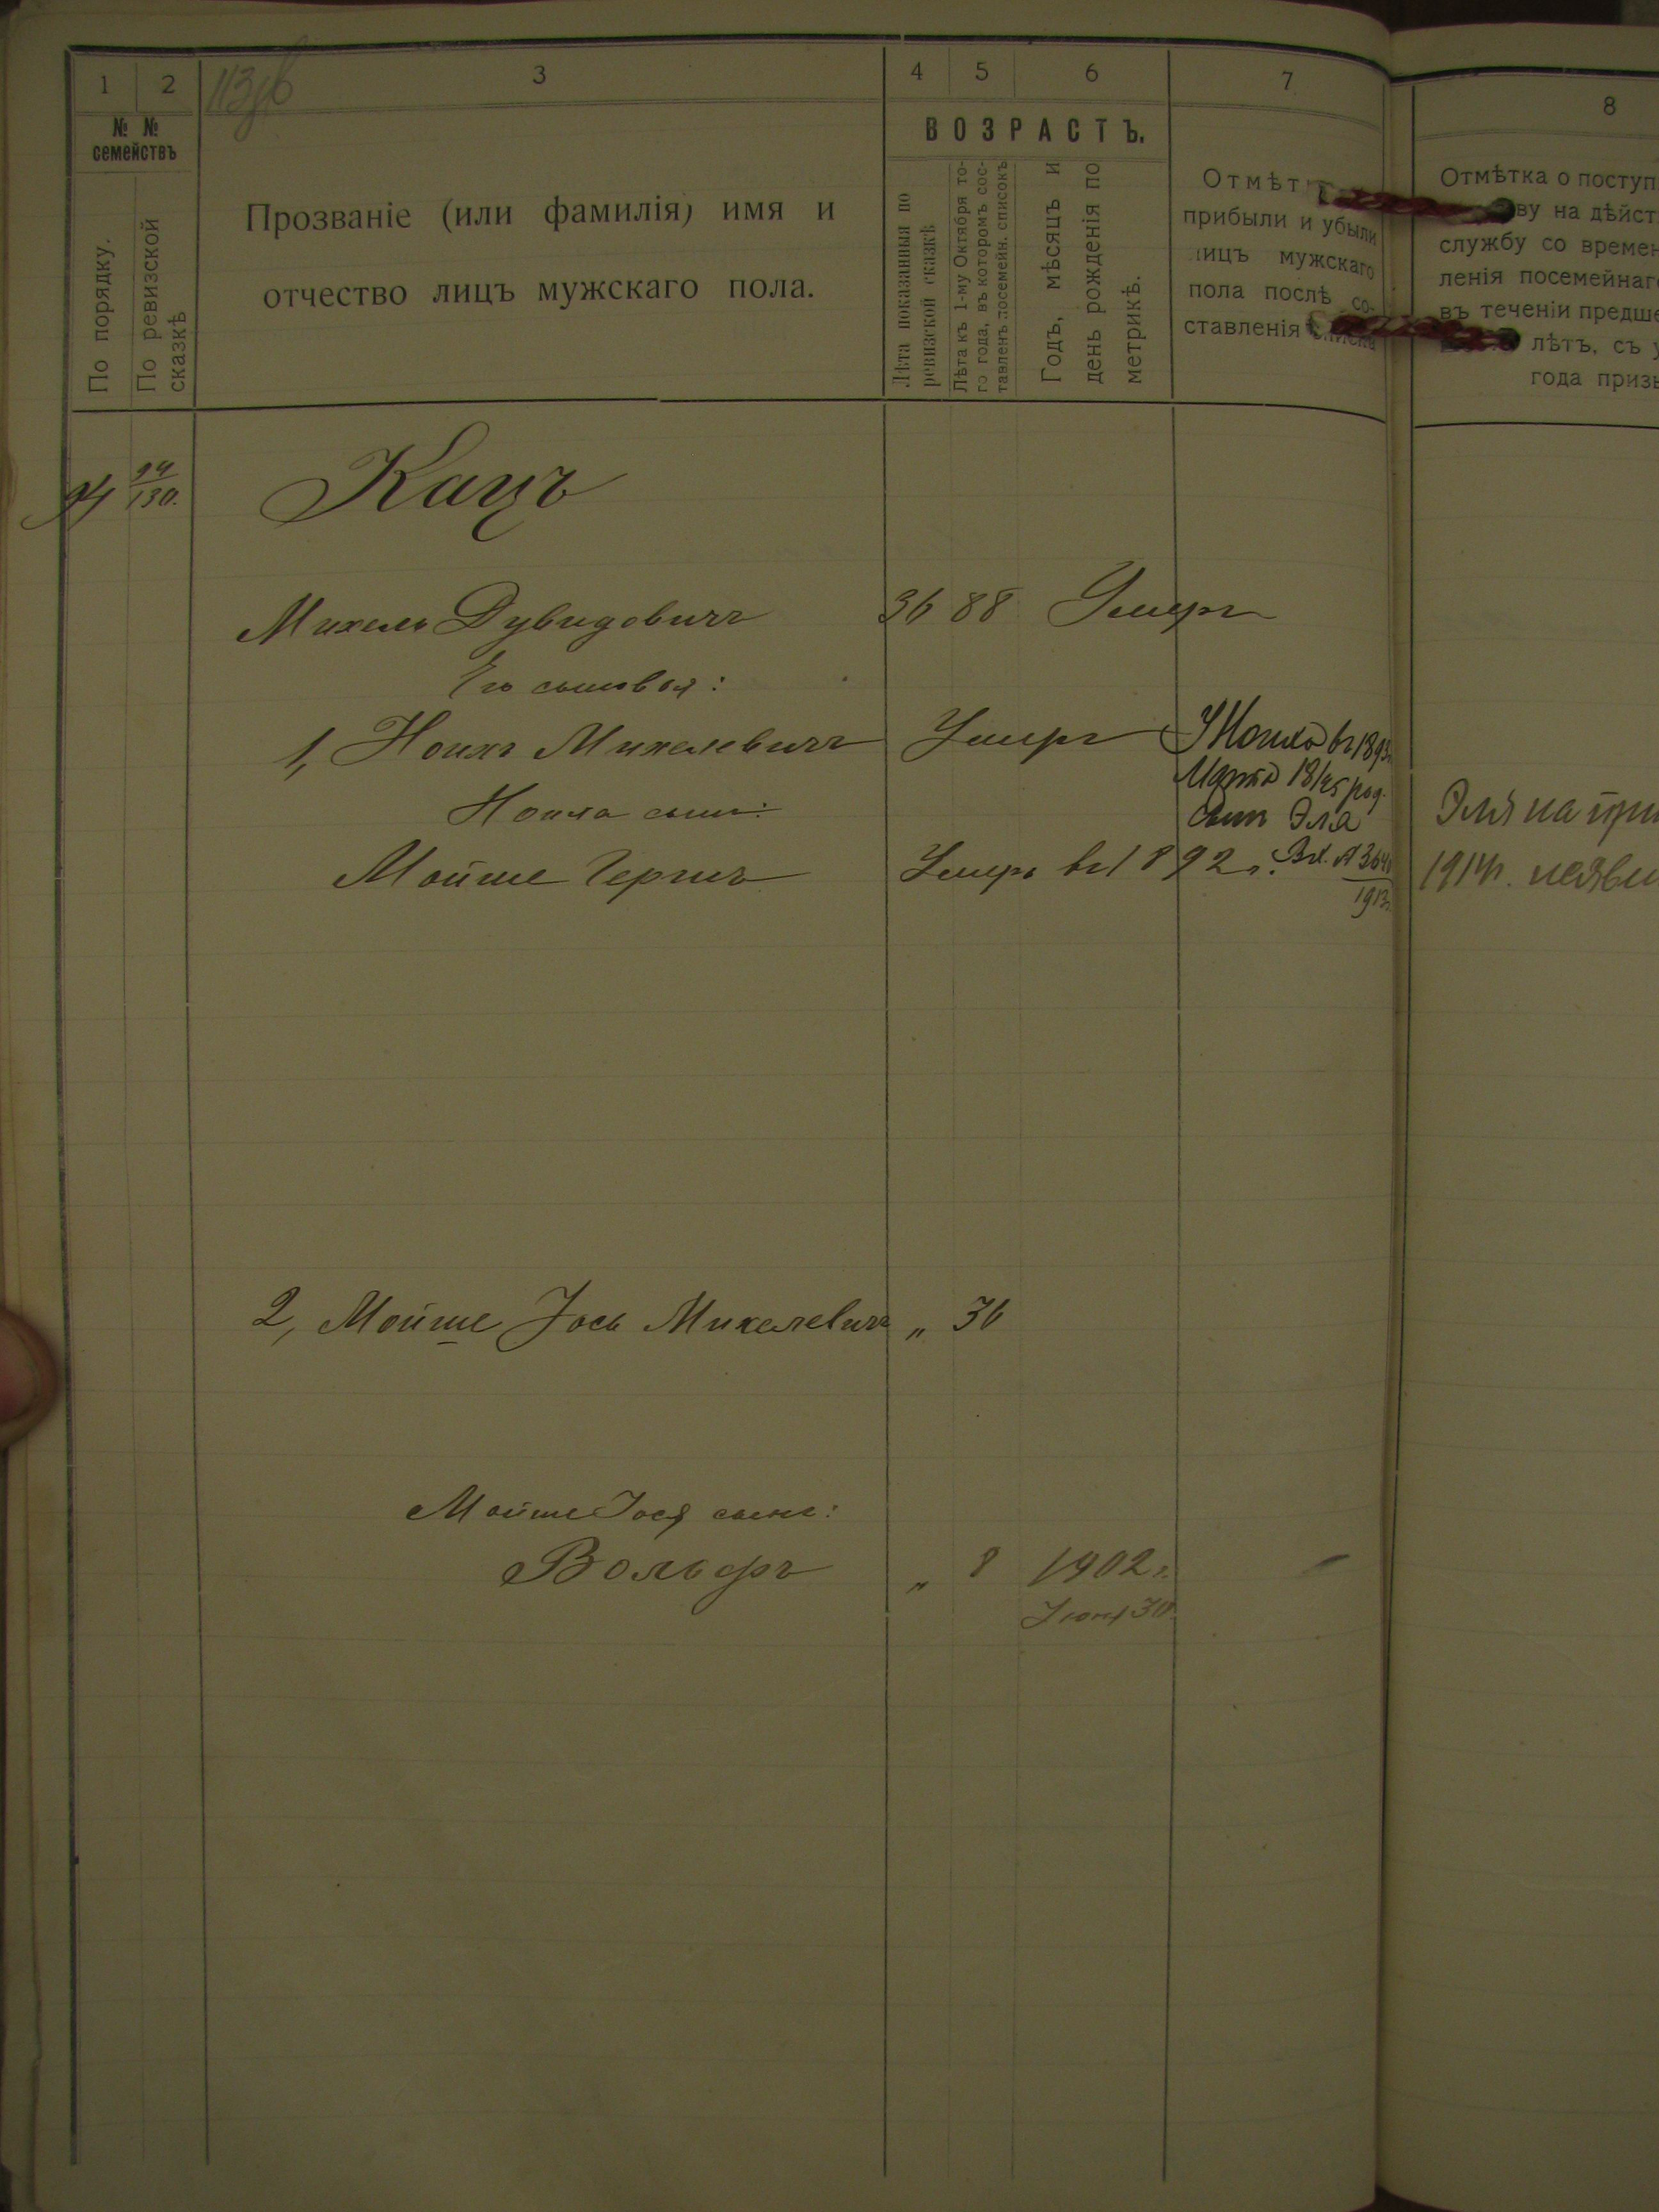 1
2
3
4
5
6
7
8
№ №
семействъ
По порядку.
По ревизской
сказкѣ
Прозваніе (или фамилія) имя и
отчество лицъ мужскаго пола.
ВОЗРАСТЪ.
Лѣта показанныя по
ревизской сказкѣ
Лѣта къ 1-му Октября то-
го года, въ которомъ сос-
тавленъ посемейн. списокъ
Годъ, мѣсяцъ и
день рожденія по
метрикѣ.
Отмѣт
прибыли и убыли
лицъ мужскаго
пола послѣ со-
ставленія списка
Отмѣтка о поступ
ву на дѣйст
службу со времен
ленія посемейнаг
въ теченіи предше
лѣтъ, съ у
года призы
94 94/130.
Кацъ
Михель Дувидовичъ 36 88 Умеръ
Его сыновья:
1, Ноихъ Михелевичъ Умеръ У Ноиха въ 1893г.
Марта 18/25 род.
сынъ Эля
Ноиха сынъ:
Мойше Герцъ Умеръ въ 1892 г. Вх. №
1913г.
Эля на при
1914г. неяви
2, Мойше Іось Михелевичъ " 36
Мойше Іося сынъ:
Вольфъ " 8 1902 г.
Іюня 30